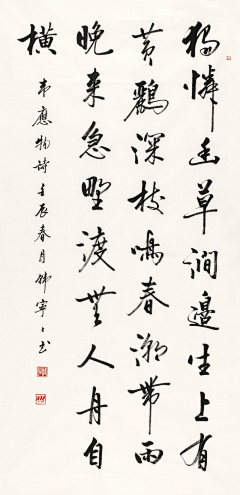 獨憐幽草澗邊生上有
黄鸝深樹鳴春潮帶雨
晚来急野渡無人舟自
橫
韋應物詩壬辰春月韓寧〻書